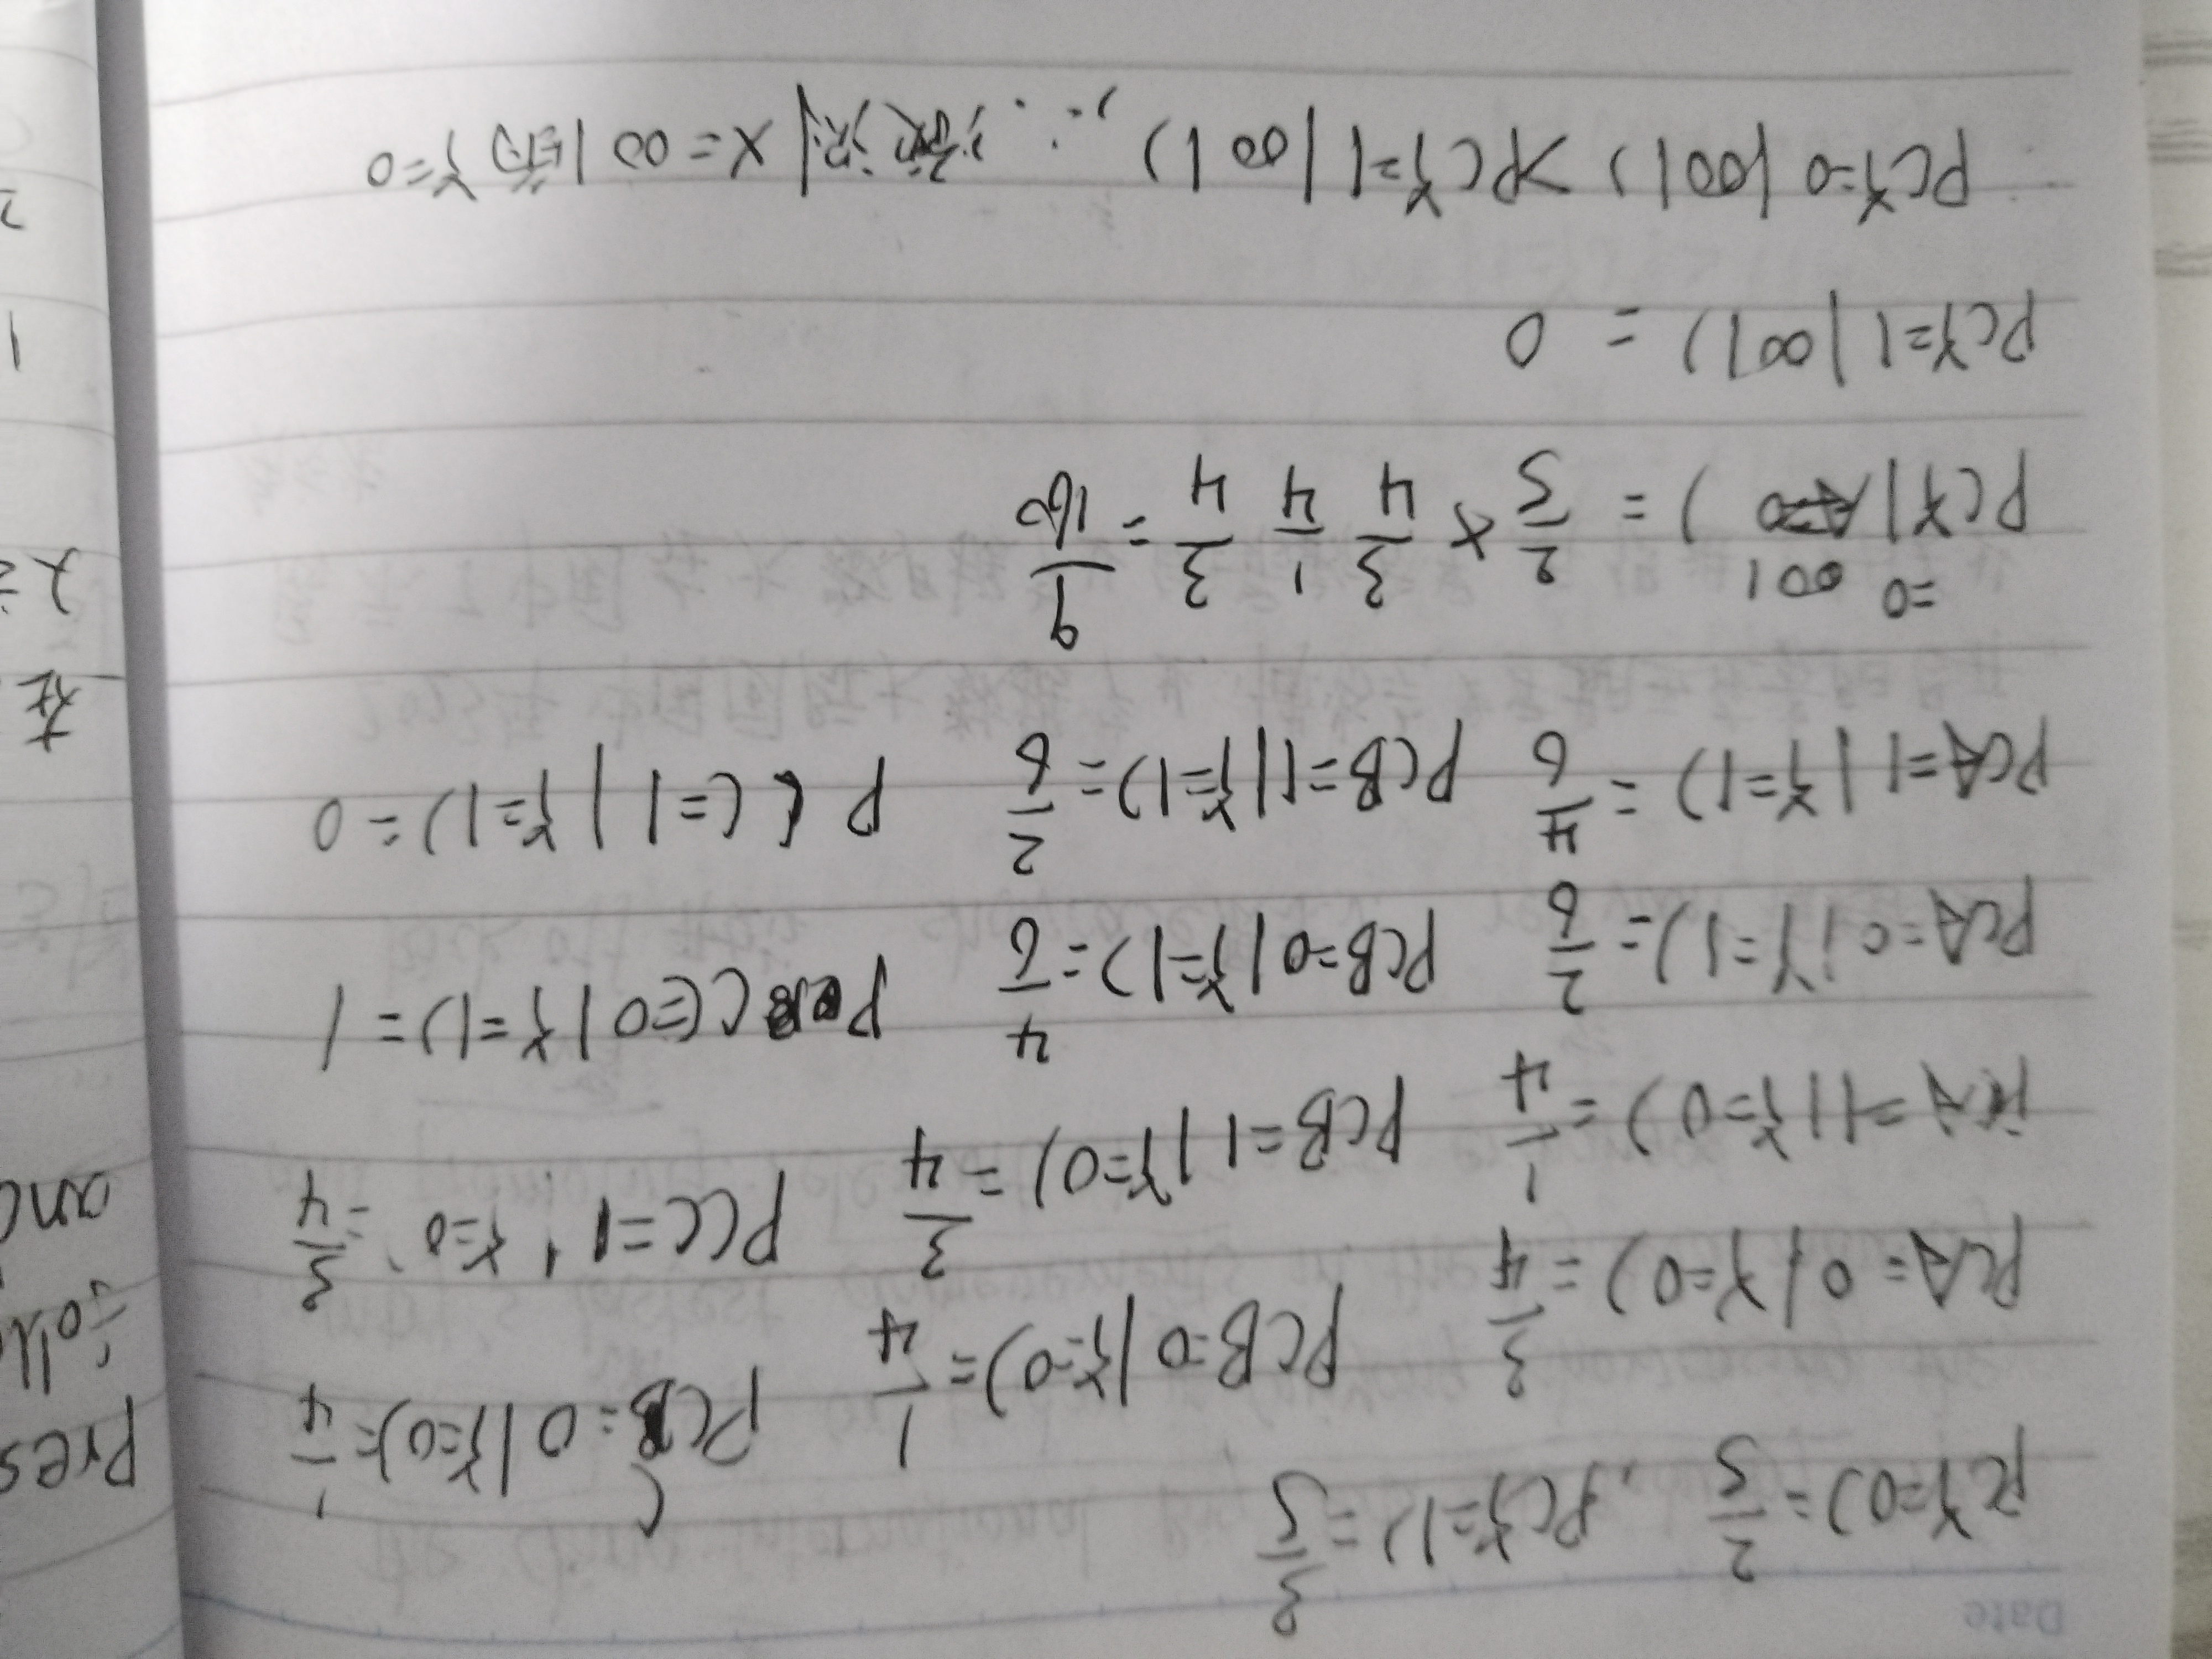 Date
P(Y=0)=2/5 , P(Y=1)=3/5
P(A=0|Y=0)=3/4 P(B=0|Y=0)=1/4 P(C=0|Y=0)=1/4
P(A=1|Y=0)=1/4 P(B=1|Y=0)=3/4 P(C=1|Y=0)=3/4
P(A=0|Y=1)=2/6 P(B=0|Y=1)=4/6 P(C=0|Y=1)=1
P(A=1|Y=1)=4/6 P(B=1|Y=1)=2/6 P(C=1|Y=1)=0
P(Y=0|001)=2/5×3/4 1/4 3/4=9/160
P(Y=1|001)=0
P(Y=0|001)>P(Y=1|001),∴预测X=001的Y=0
pres
foll
and
在
1
2